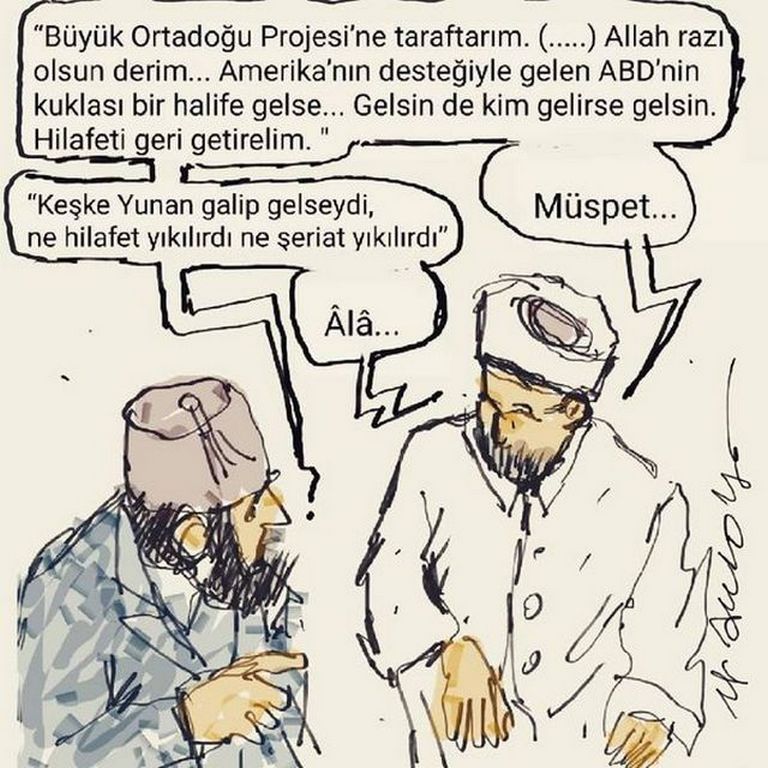 “Büyük Ortadoğu Projesi’ne taraftarım. (.....) Allah razı
olsun derim... Amerika’nın desteğiyle gelen ABD’nin
kuklası bir halife gelse... Gelsin de kim gelirse gelsin.
Hilafeti geri getirelim. "
Müspet...
“Keşke Yunan galip gelseydi,
ne hilafet yıkılırdı ne şeriat yıkılırdı”
Âlâ...